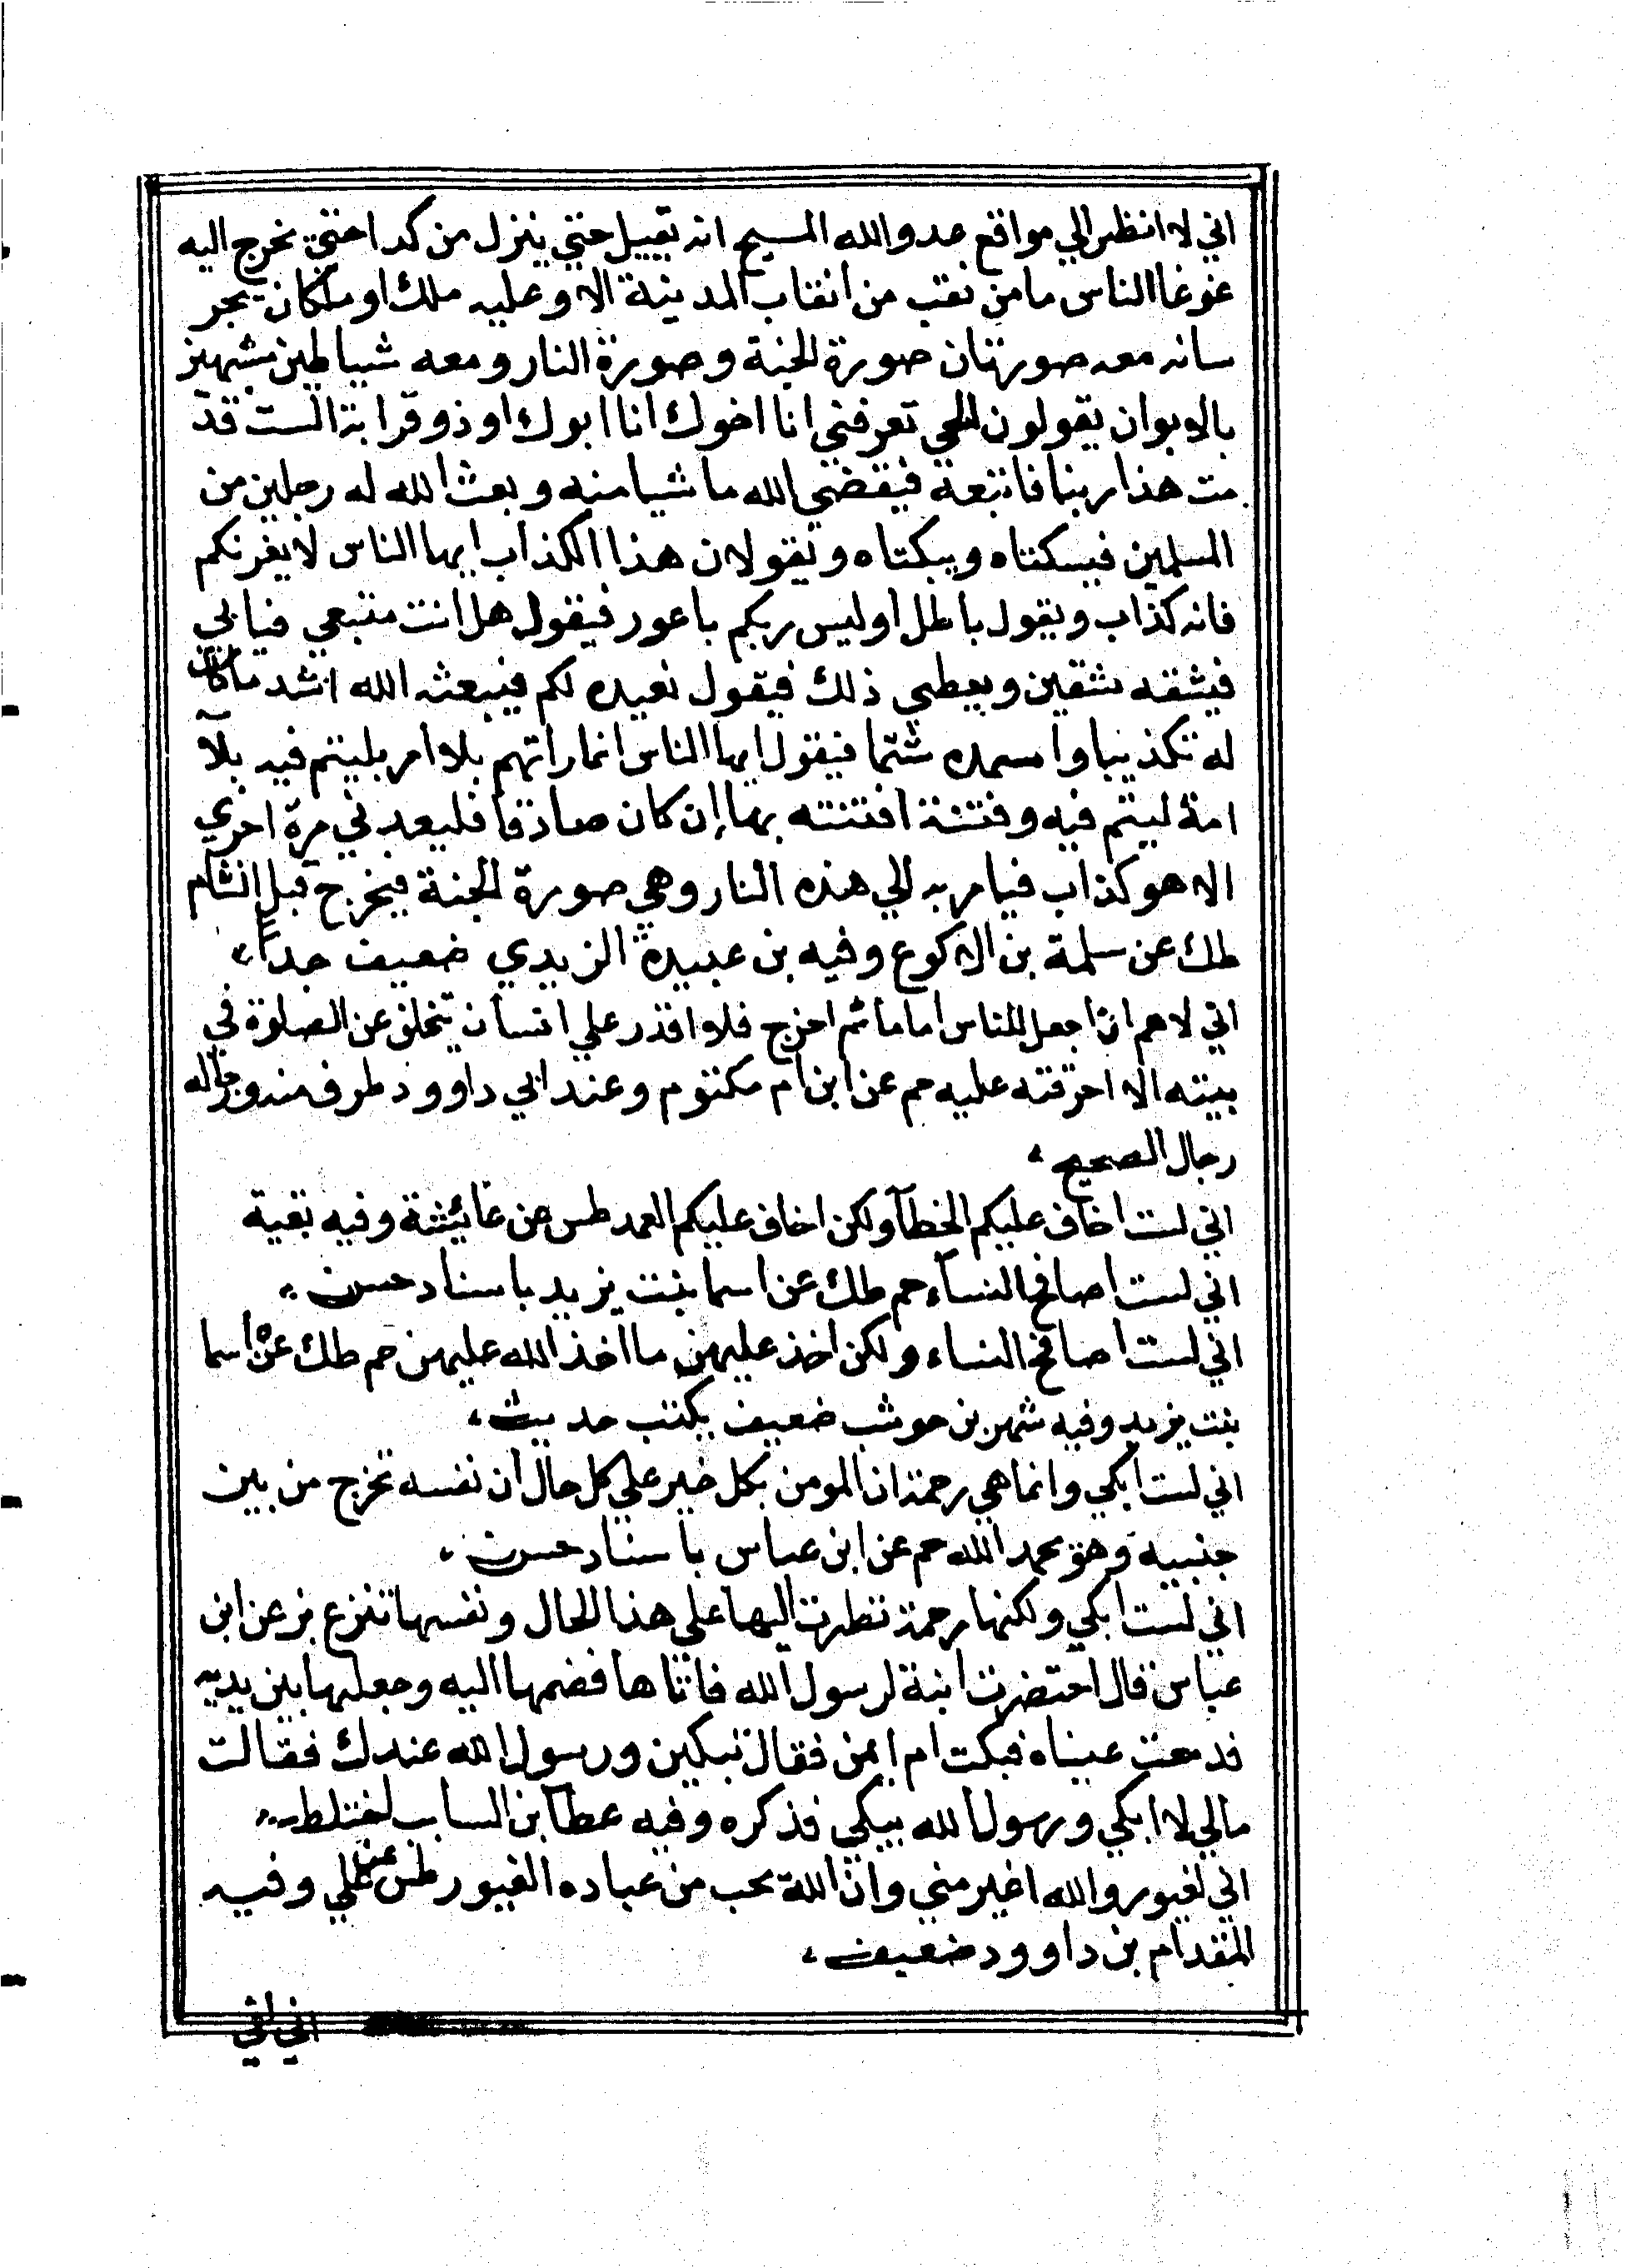 اني لا انظر الي مواقع عدو الله المسيح انه يقبيل حتي ينزل من كدا حتي يخرج اليه
غوغا الناس ما من نقب من انقاب المدينة الا وعليه ملك او ملكان يحر
سانه معه صورتان صورة الجنة وصورة النار ومعه شياطين مشبهين
بالابوان يقولون للحي تعرفني انا اخوك انا ابوك او ذو قرابة الست قد
مت هذا ربنا فاتبعة فيقضي الله ما شيا منه وبعث الله له رجلين من
المسلمين فيسكتاه ويبكتاه ويقولان هذا الكذاب ايها الناس لا يغرنكم
فانه كذاب ويقول باطلا وليس ربكم باعور فيقول هل انت متبعي فيابي
فيشقه شقين ويعطي ذلك فيقول نعيده لكم فيبعثه الله اشد ما كان
له تكذيبا و شتما فيقول ايها الناس انما راتهم بلا امر بليتم فيه بلآ
امة ليتم فيه وفتنة افتنته بها إن كان صادقا فليعدني مرة اخري
الا هو كذاب فيامر به الي هذه النار وهي صورة الجنة فيخرج قبل الشام
طك عن سلمة بن الاكوع وفيه بن عبيدة الزيدي ضعيف جداً،
اني لاهم ان اجعل للناس اماما ثم اخرج فلا اقدر علي انسان يتخلف عن الصلوة في
بيته الا احرقته عليه حم عن ابن ام مكتوم وعند ابي داوود طرف منه ورجاله
رجال الصحيح،
اني لست اخاف عليكم الخطآ ولكن اخاف عليكم العمد طس عن عائشة وفيه بقية
اني لست اصافح النسآء حم طك عن اسما بنت يزيد باسناد حسن،
اني لست اصافح النساء ولكن اخذ عليهن ما اخذ الله عليهن حم طك عن اسما
بنت يزيد وفيه شهر بن حوشب ضعيف يكتب حديث،
اني لست ابكي وانما هي رحمة ان المومن بكل خير علي كل حال ان نفسه تخرج من بين
جنبيه وهو يحمد الله حم عن ابن عباس باسناد حسن،
اني لست ابكي ولكنها رحمة نظرت اليها علي هذا الحال ونفسها تنزع بز عن ابن
عباس قال احتضرت ابنة لرسول الله فاتاها فضمها اليه وجعلها بين يديه
فدمعت عيناه فبكت ام ايمن فقال تبكين ورسول الله عندك فقالت
مالي لا ابكي ورسول الله يبكي فذكره وفيه عطآ بن الساب اختلط،
اني لغيور والله اغير مني وان الله يحب من عباده الغيور طس عن علي وفيه
المقدام بن داوود ضعيف،
اني لقي